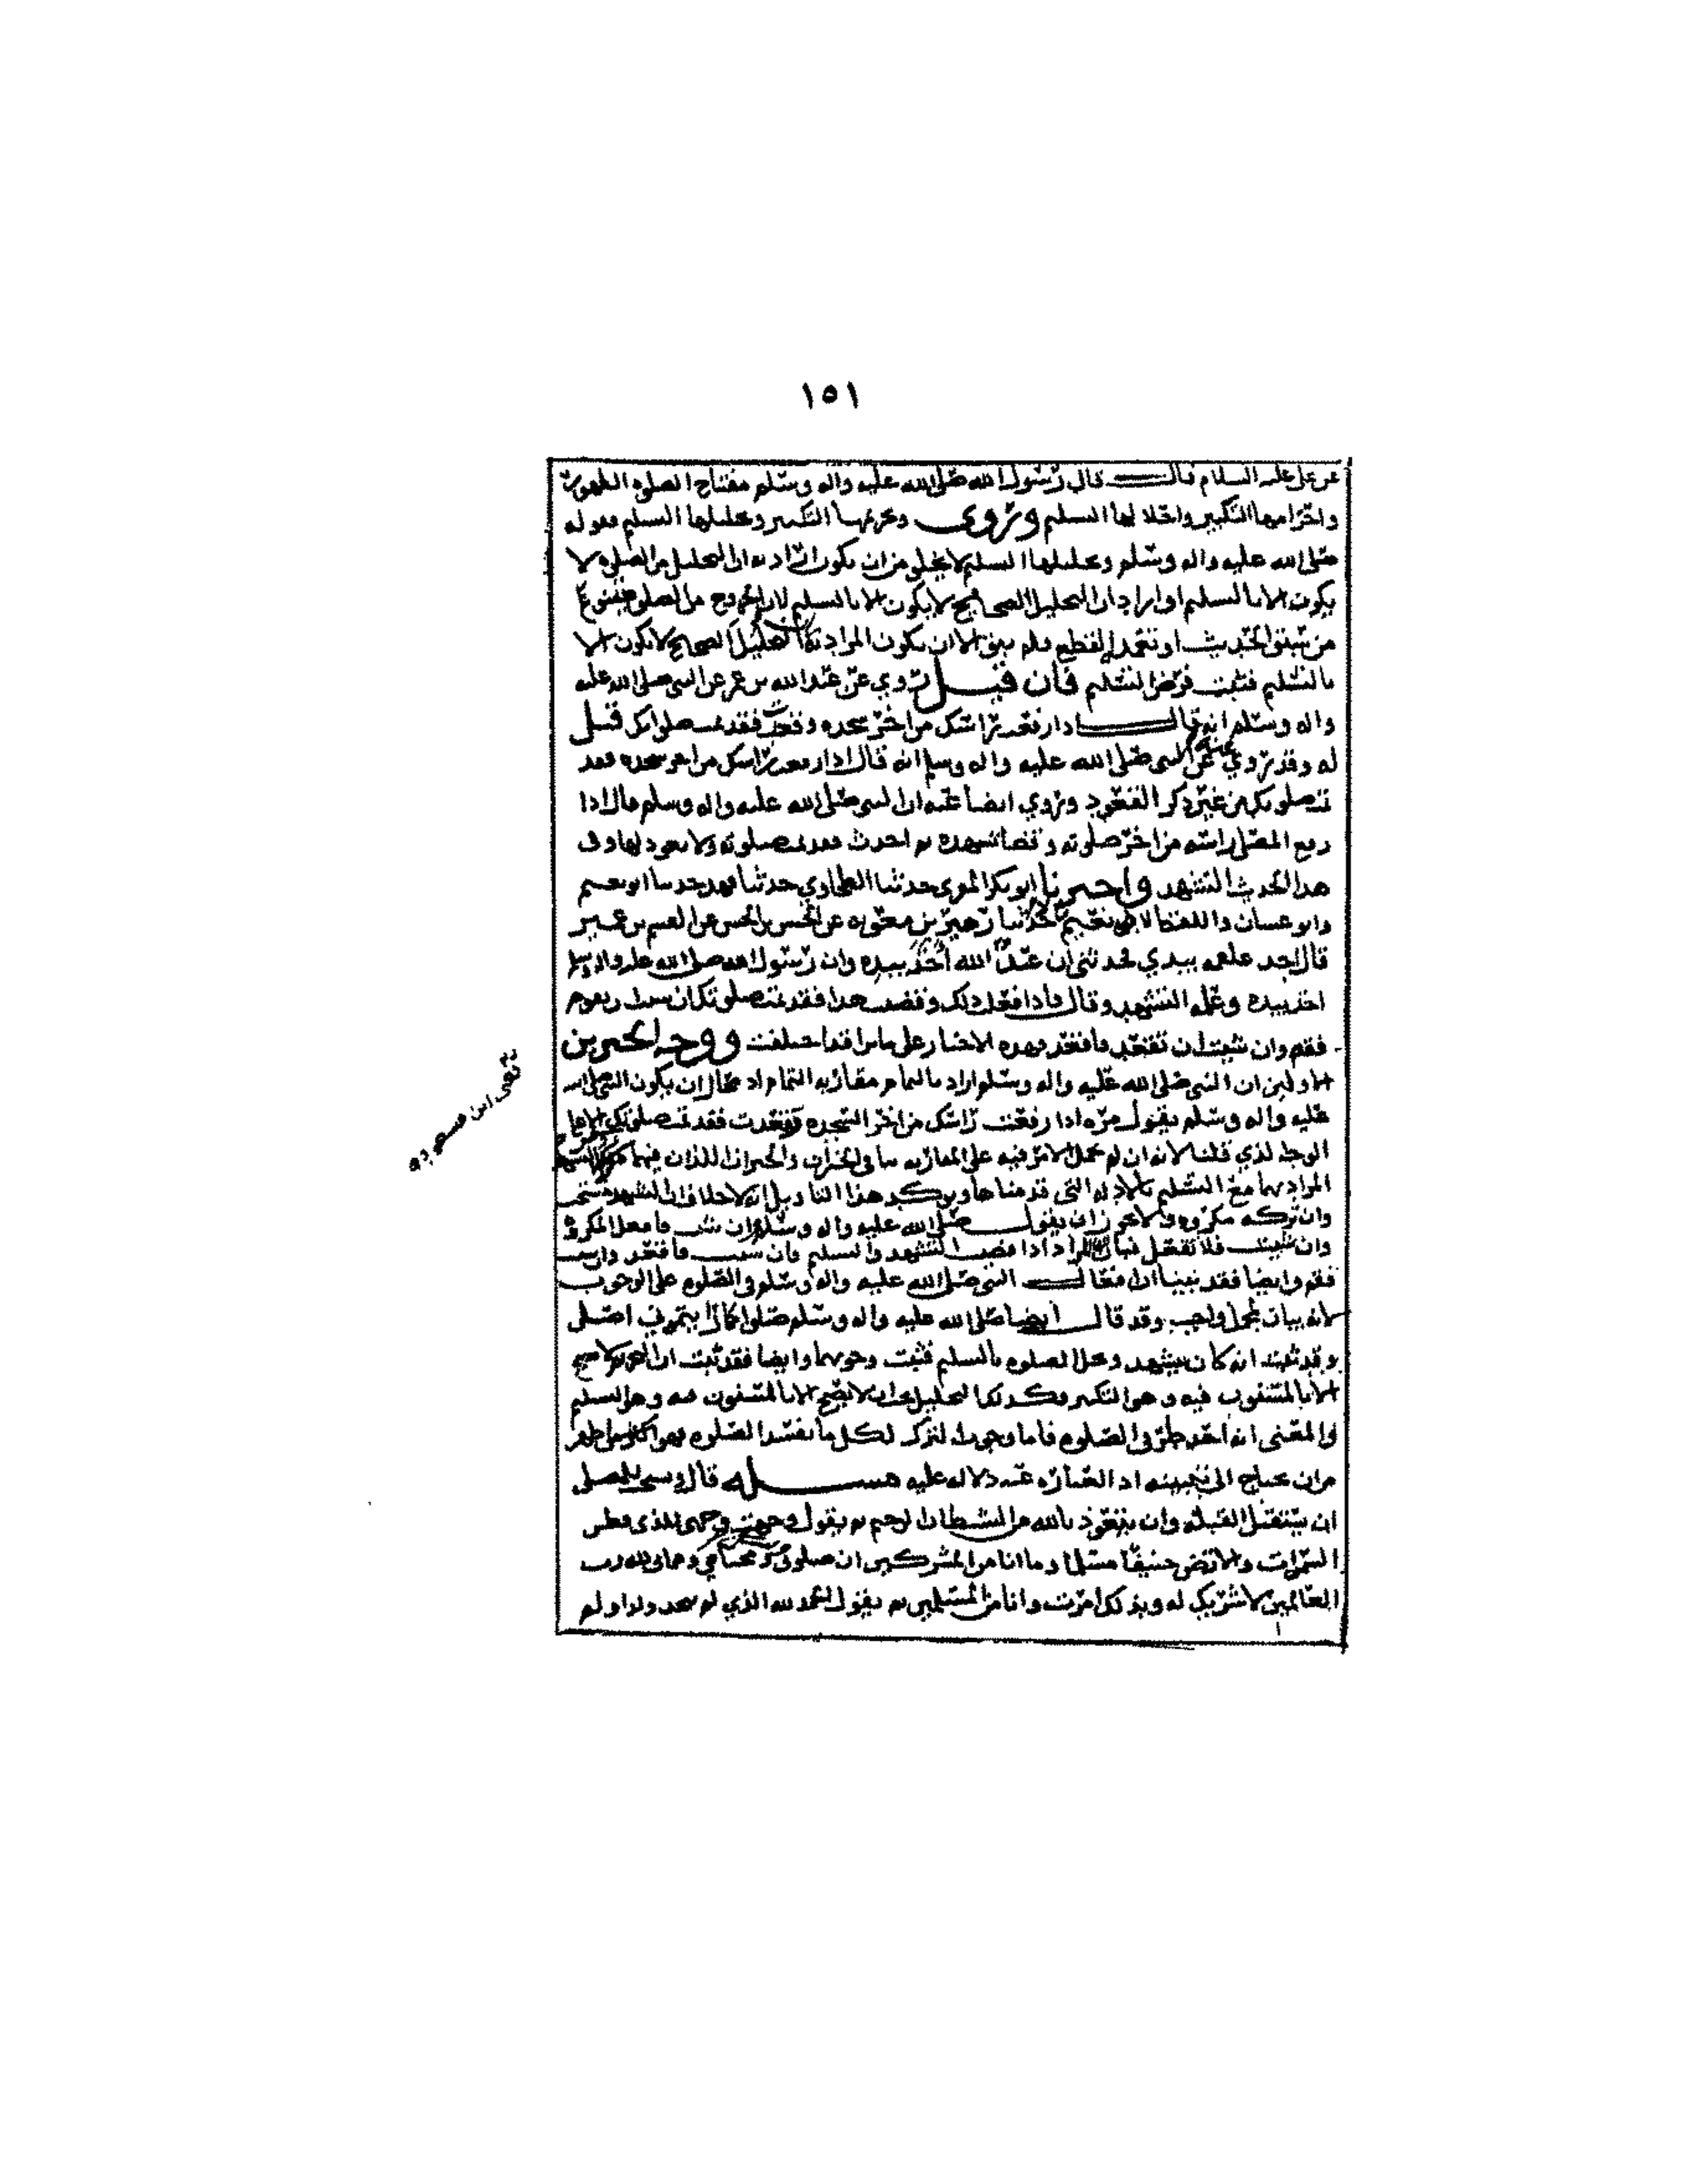 ١٥١
عن علي عليه السلام قال قال رسول الله صلى الله عليه واله وسلم مفتاح الصلوه الطهور
واحرامها التكبير واحلالها التسليم وروي وتحريمها التكبير وتحليلها التسليم فقوله
صلى الله عليه واله وسلم وتحليلها التسليم لا يخلو من ان يكون اراد به ان التحليل من الصلوه لا
يكون الا بالتسليم او اراد ان التحليل الصحيح لا يكون الا بالتسليم لان الخروج من الصلوه يقع
من سبق الحديث او تعمد القطع ولم يبق الا ان يكون المراد به ان التحليل الصحيح لا يكون الا
بالتسليم فثبت فرض التسليم فان قيل روي عن عبد الله بن عمر عن النبي صلى الله عليه
واله وسلم انه قال اذا رفعت راسك من اخر سجده وقعدت فقد تمت صلواتك قيل
له وقد روي عنه عن النبي صلى الله عليه واله وسلم انه قال اذا رفعت راسك من اخر سجده فقد
تمت صلوتك من غير ذكر القعود وروي ايضا عنه ان النبي صلى الله عليه واله وسلم قال اذا
رفع المصلي راسه من اخر صلوته وقضا تشهده ثم احدث فقد تمت صلوته ولا يعود لها وفي
هذا الحديث التشهد واخبرنا ابو بكر المقري حدثنا الطحاوي حدثنا فهد حدثنا ابو نعيم
وابو غسان واللفظ لابي نعيم قالا حدثنا زهير بن معويه عن الحسن بن الحر عن القسم بن مخيمر
قال اخذ علقمه بيدي فحدثني ان عبد الله اخذ بيده وان رسول الله صلى الله عليه واله وسلم
اخذ بيده وعلمه التشهد وقال فاذا فعلت ذلك وقضيت هذا فقد تمت صلوتك ان شئت ان تقوم
فقم وان شئت ان تقعد فاقعد فهذه الاخبار على ما ترا قد اختلفت ووجه الخبرين
الاولين ان النبي صلى الله عليه واله وسلم اراد بالتمام مقاربه التمام اذ محال ان يكون النبي صلى الله
عليه واله وسلم يقول مره اذا رفعت راسك من اخر السجده وقعدت فقد تمت صلوتك الا على
الوجه الذي قلنا لانه ان لم يحمل الامر فيه على المقاربه تنافى الخبران والخبران اللذان فيهما ذكر التشهد
المراد بهما مع التسليم بالادله التي قدمناها ويوكد هذا التاويل انه لا خلاف ان التشهد مستحب
وان تركه مكروه ولا يجوز ان يقول صلى الله عليه واله وسلم ان شئت فافعل المكروه
وان شئت فلا تفعل فبان ان المراد اذا قضيت التشهد والتسليم فان شئت فاقعد وان شئت
فقم وايضا فقد بينا ان افعال النبي صلى الله عليه واله وسلم في الصلوه على الوجوب
لانه بيان لمجمل واجب وقد قال ايضا صلى الله عليه واله وسلم صلوا كما رايتموني اصلي
وقد ثبت انه كان يتشهد وتحلل الصلوه بالتسليم فثبت وجوبهما وايضا فقد ثبت ان التحريم لا يصح
الا بالمسنون فيه وهو التكبير وكذلك التحليل يجب ان لا يصح الا بالمسنون فيه وهو التسليم
والمعنى انه احد طرفي الصلوه فاما وجوب الترك لكل ما يفسد الصلوه فهو اظهر
من ان يحتاج الى تبيينه اذ العباره عنه دلاله عليه مسله قال ويستحب للمصلي
ان يستقبل القبله وان يتعوذ بالله من الشيطان الرجيم ثم يقول وجهت وجهي للذي فطر
السموات والارض حنيفا مسلما وما انا من المشركين ان صلوتي ونسكي ومحياي ومماتي لله رب
العالمين لا شريك له وبذلك امرت وانا من المسلمين ثم يقول الحمد لله الذي لم يتخذ ولدا ولم
يعني ابن مسعود